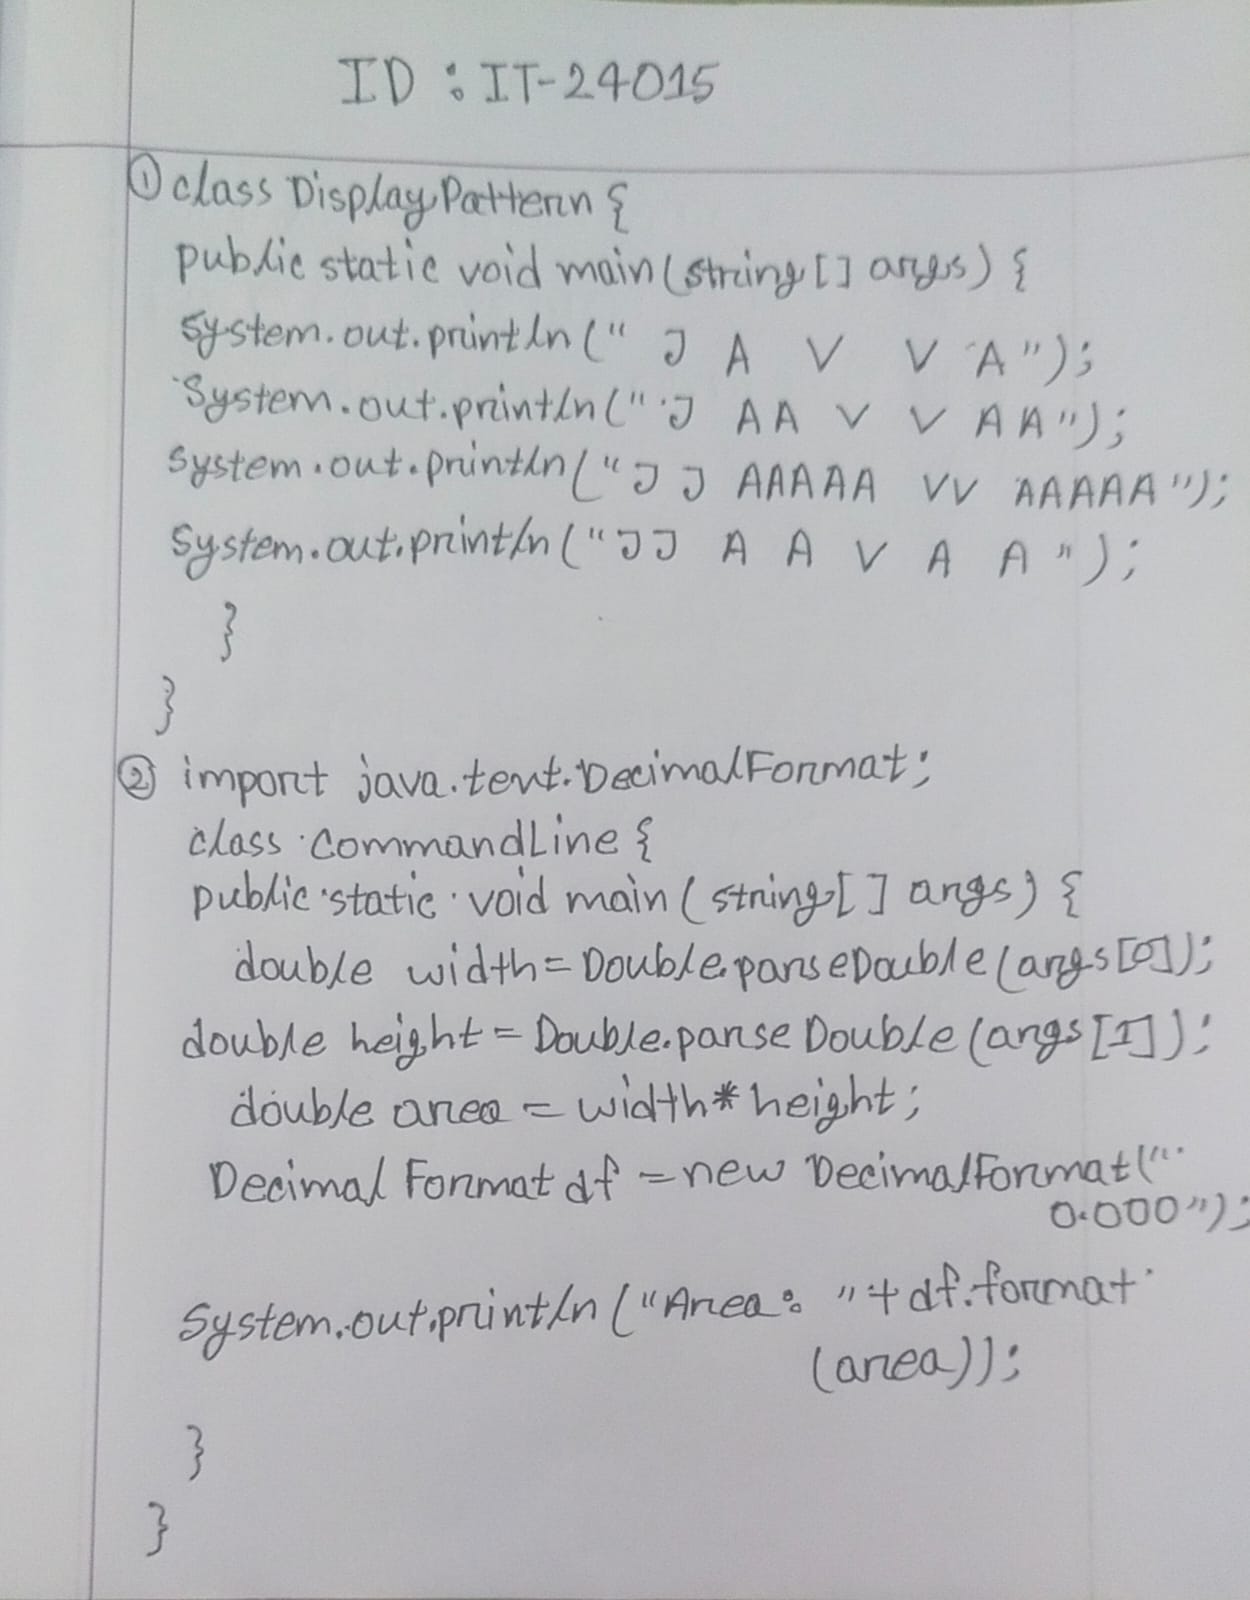 ID : IT-24015
① class DisplayPattern {
public static void main(string[] args) {
System.out.println(" J A V V A");
System.out.println(" J AA V V AA");
System.out.println("J J AAAAA VV AAAAA");
System.out.println("JJ A A V A A");
}
}
② import java.text.DecimalFormat;
class CommandLine {
public static void main(string[] args) {
double width = Double.parseDouble(args[0]);
double height = Double.parseDouble(args[1]);
double area = width*height;
Decimal Format df = new DecimalFormat("
0.000");
System.out.println("Area: "+df.format
(area));
}
}